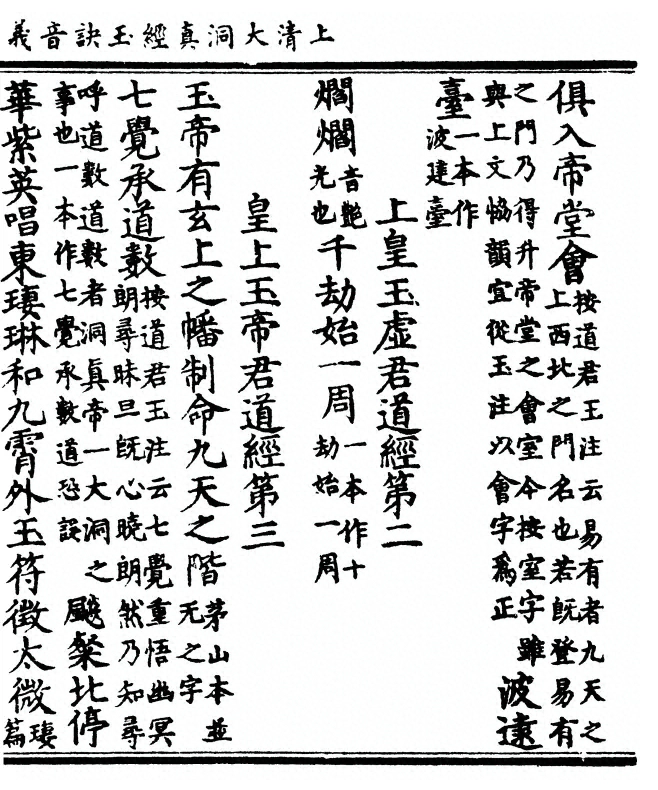 上清大洞真經玉訣音義
俱入帝堂會
按道君王注云易有者九天之
上西北之門名也若既登易有
之門乃得升帝堂之會室今按室字雖
與上文恊韻宜從玉注以會字為正
波遠
臺
一本作
波建臺
上皇玉虛君道經第二
爓爓
音艷
光也
千劫始一周
一本作十
劫始一周
皇上玉帝君道經第三
玉帝有玄上之幡制命九天之階
茅山本並
无之字
七覺承道數
按道君玉注云七覺重悟幽冥
朗尋昧旦既心曉朗然乃知尋
呼道數道數者洞真帝一大洞之
事也一本作七覺承數道恐誤
颷粲北停
華紫英唱東琳和九霄外玉符徵太微
篇